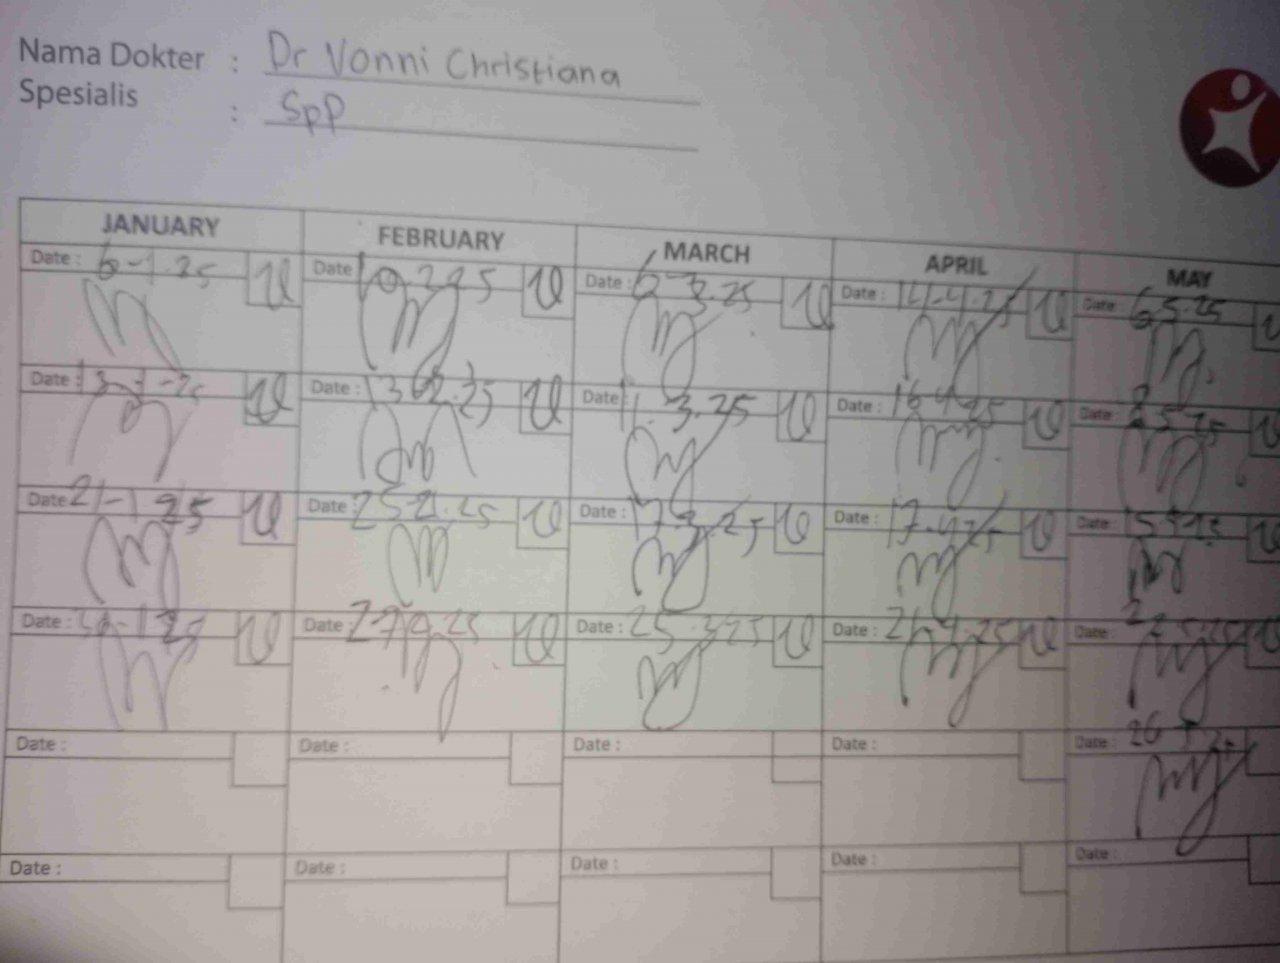 Nama Dokter : Dr Vonni Christiana
Spesialis : SpP
JANUARY FEBRUARY MARCH APRIL MAY
Date : 6-1-25 Date 10.2.25 Date : 6-3.25 Date : 14-4-25 Date : 6.5.25
Date : 13-1-25 Date : 13.02.25 Date : 11.3.25 Date : 16.4.25 Date :
Date 21-1-25 Date : 25.2.25 Date : 17.3.25 Date : 17.4.25 Date : 15.5.25
Date : 30-1-25 Date : 27.2.25 Date : 25.3.25 Date : 21.4.25 Date : 22.5.25
Date : Date : Date : Date : Date : 26
Date : Date : Date : Date : Date :